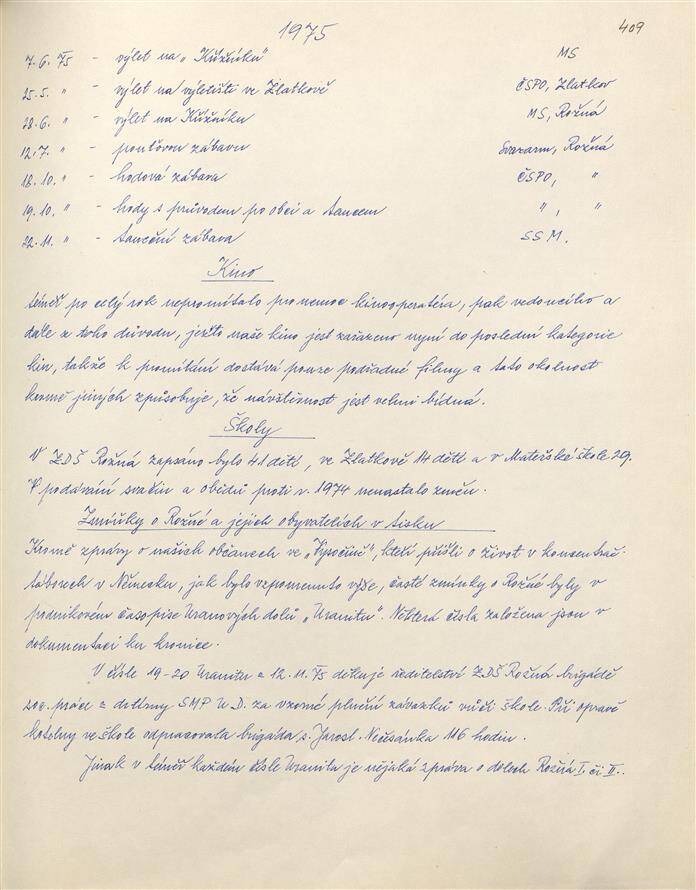 1975
409
7.6. 75 - výlet na „Křížníku" MS
25.5. " - výlet na výletišti ve Zlatkově ČSPO, Zlatkov
28.6. " - výlet na Křížníku MS, Rožná
12.7. " - pouťovou zábavu Svazarm, Rožná
18.10. " - hodová zábava ČSPO, "
19.10. " - hody s průvodem po obci a tancem ", "
22.11. " - taneční zábava SSM.
Kino
téměř po celý rok nepromítalo pro nemoc kinooperatéra, pak vedoucího a
dále z toho důvodu, ježto naše kino jest zařazeno nyní do poslední kategorie
kin, takže k promítání dostává pouze podřadné filmy a tato okolnost
kromě jiných způsobuje, že návštěvnost jest velmi bídná.
Školy
V ZDŠ Rožná zapsáno bylo 41 dětí, ve Zlatkově 14 dětí a v Mateřské škole 29.
V podávání svačin a obědů proti r. 1974 nenastalo změn.
Zmínky o Rožné a jejich obyvatelích v tisku
Kromě zprávy o našich občanech ve „Vysočině", kteří přišli o život v koncentrač.
táborech v Německu, jak bylo vzpomenuto výše, časté zmínky o Rožné byly v
podnikovém časopise Uranových dolů „Uranitu". Některá čísla založena jsou v
dokumentaci ku kronice.
V čísle 19-20 Uranitu z 12.11.75 děkuje ředitelství ZDŠ Rožná brigádě
soc. práce z dílny SMP U D. za vzorné plnění závazků vůči škole. Při opravě
kotelny ve škole odpracovala brigáda s. Jarosl. Nečesánka 116 hodin.
Jinak v téměř každém čísle Uranitu je nějaká zpráva o dolech Rožná I. či II..